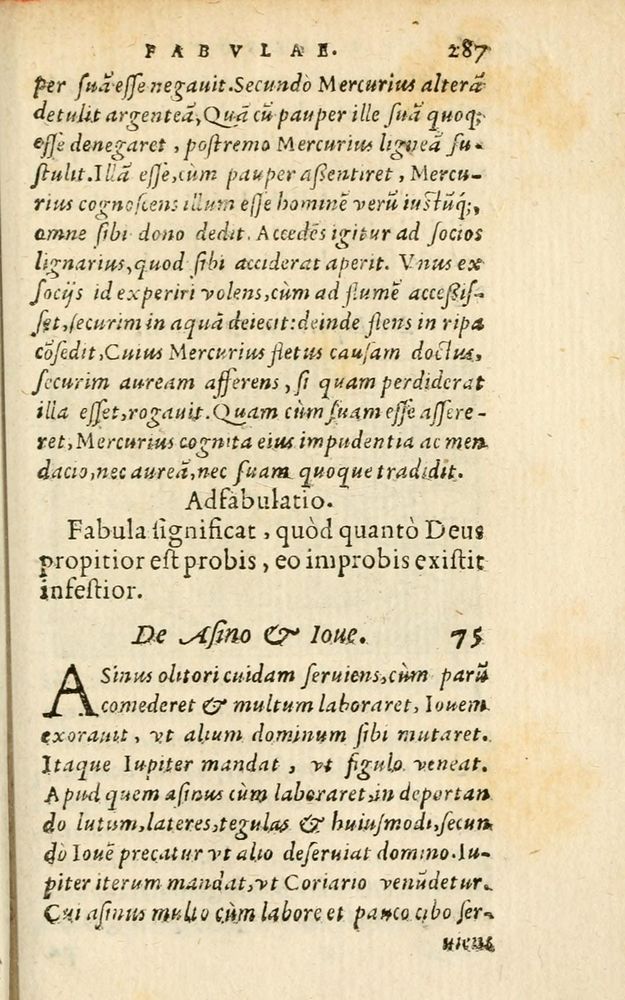 FABVLAE. 287
per suã esse negauit. Secundò Mercurius alterã
detulit argenteã, Quã cũ pauper ille suã quoq;
esse denegaret, postremo Mercurius ligneã su-
stulit. Illã esse, cùm pauper assentiret, Mercu-
rius cognoscens illum esse hominẽ verũ iustũq́;,
omne sibi dono dedit. Accedẽs igitur ad socios
lignarius, quod sibi acciderat aperit. Vnus ex
socijs id experiri volens, cùm ad flumẽ accessis-
set, securim in aquã deiecit: deinde flens in ripa
cõsedit, Cuius Mercurius fletus causam doctus,
securim auream afferens, si quam perdiderat
illa esset, rogauit. Quam cùm suam esse assere-
ret, Mercurius cognita eius impudentia ac men
dacio, nec aureã, nec suam quoque tradidit.
Adfabulatio.
Fabula significat, quòd quantò Deus
propitior est probis, eo improbis existit
infestior.
De Asino & Ioue. 75
ASinus olitori cuidam seruiens, cùm parũ
comederet & multum laboraret, Iouem
exorauit, vt alium dominum sibi mutaret.
Itaque Iupiter mandat, vt figulo veneat.
Apud quem asinus cùm laboraret, in deportan
do lutum, lateres, tegulas & huiusmodi, secun
dò Iouẽ precatur vt alio deseruiat domino. Iu-
piter iterum mandat, vt Coriario venũdetur.
Cui asinus multo cùm labore et pauco cibo ser-
uiens